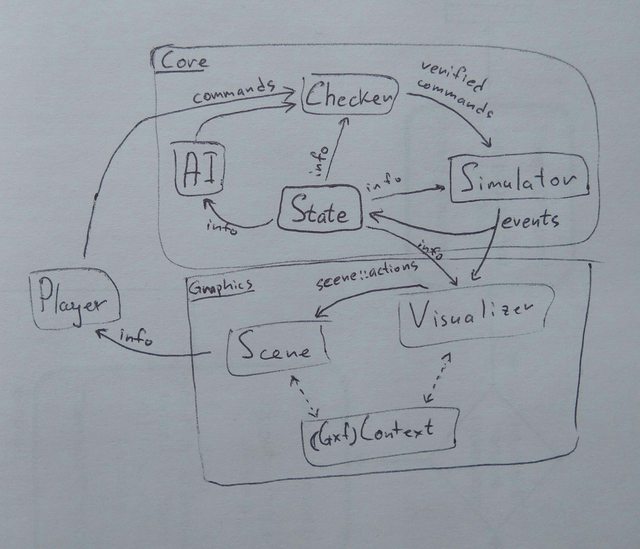 Core
commands
Checker
verified
commands
AI
info
info
Simulator
State
info
events
info
Player
Graphics
scene::actions
Visualizer
info
Scene
(Gxf)Context